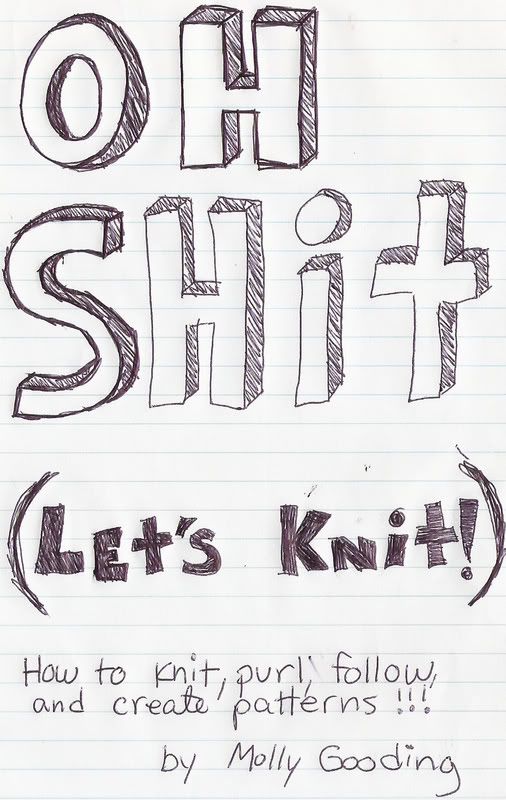 OH
SHit
(LEt's Knit!)
How to knit, purl, follow,
and create patterns !!!
by Molly Gooding